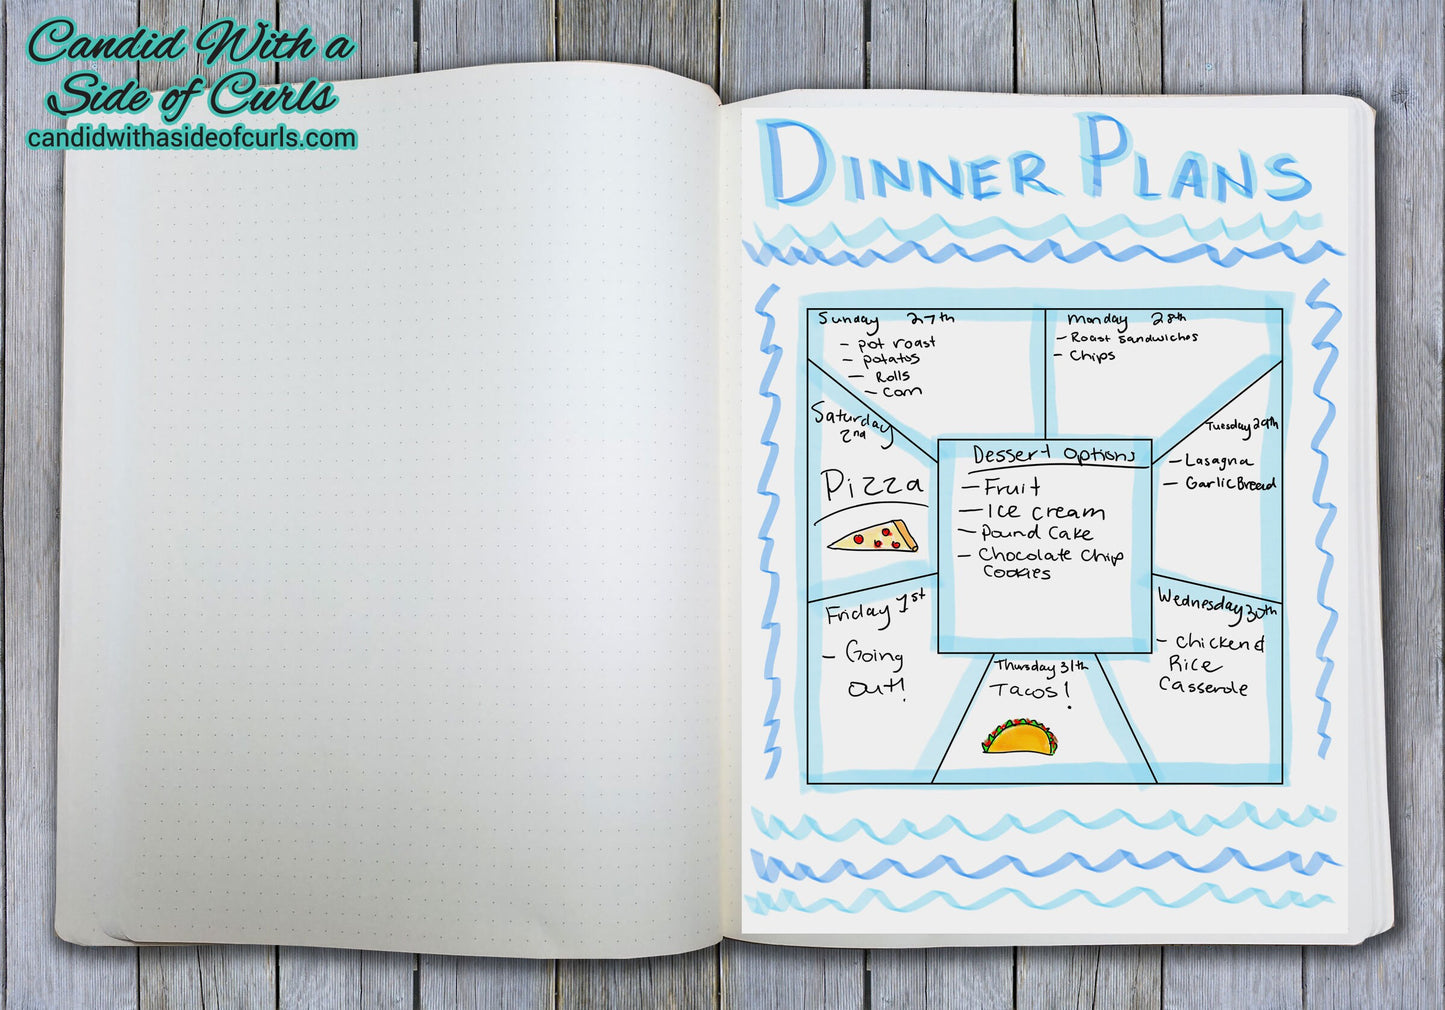 Candid With a
Side of Curls
candidwithasideofcurls.com
DINNER PLANS
Sunday 27th
- pot roast
- potatos
- Rolls
- Corn
Monday 28th
- Roast Sandwiches
- Chips
Tuesday 29th
- Lasagna
- Garlic Bread
Wednesday 30th
- Chicken &
Rice
Casserole
Thursday 31th
Tacos!
Friday 1st
- Going
Out!
Saturday
2nd
Pizza
Dessert Options
- Fruit
- Ice cream
- Pound Cake
- Chocolate Chip
Cookies